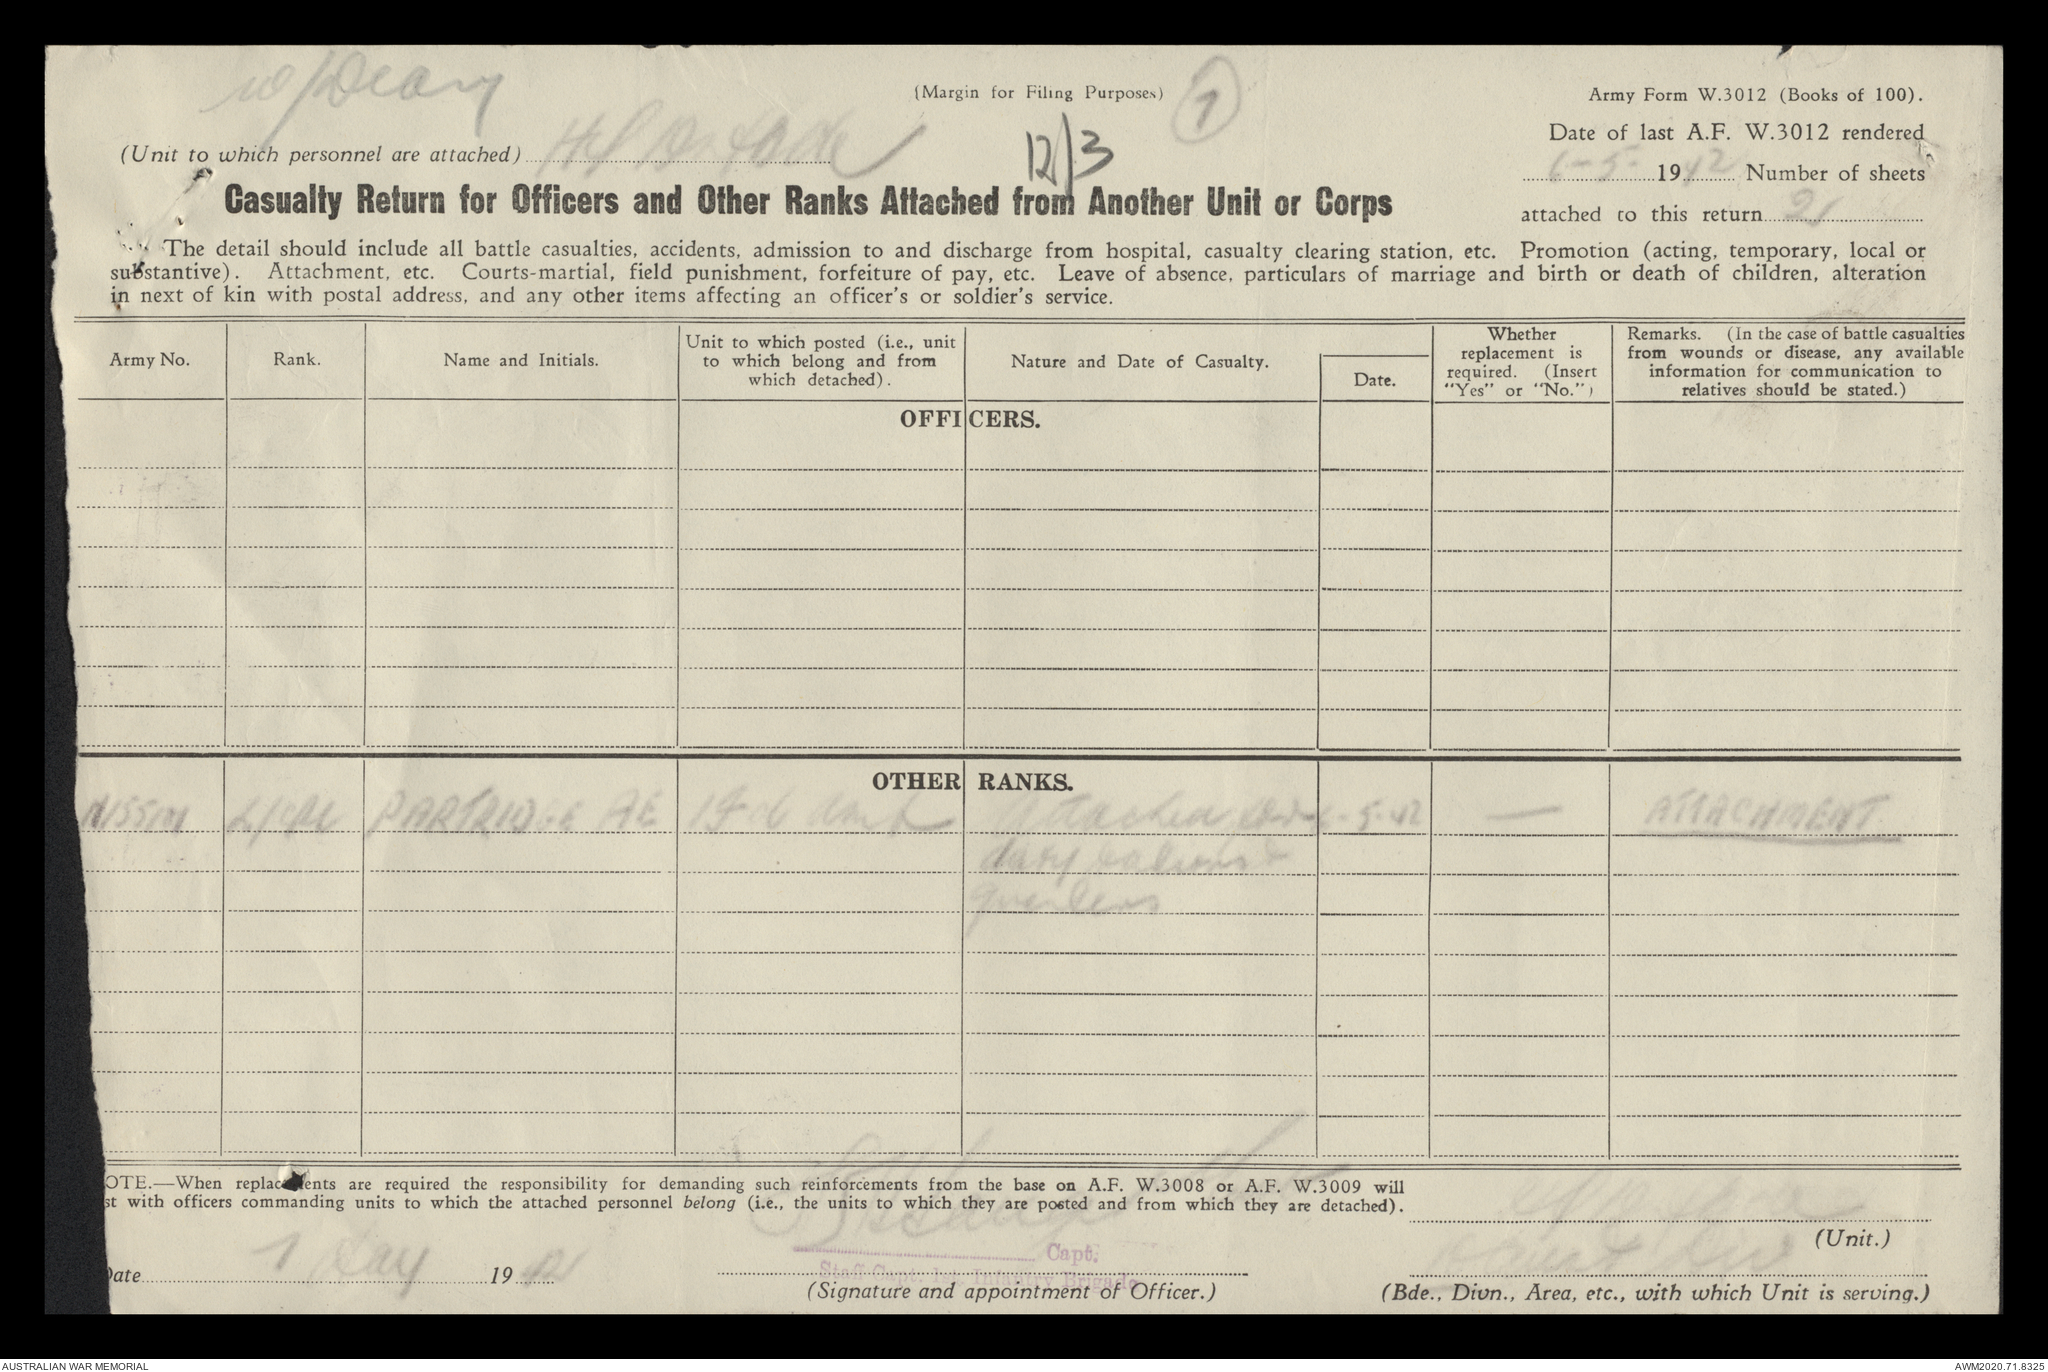 W/Diary
(Margin for Filing Purposes)
1
Army Form W.3012 (Books of 100).
Date of last A.F. W.3012 rendered
(Unit to which personnel are attached)
12/3
6-5- 1942 Number of sheets
Casualty Return for Officers and Other Ranks Attached from Another Unit or Corps
attached to this return
The detail should include all battle casualties, accidents, admission to and discharge from hospital, casualty clearing station, etc. Promotion (acting, temporary, local or
substantive). Attachment, etc. Courts-martial, field punishment, forfeiture of pay, etc. Leave of absence, particulars of marriage and birth or death of children, alteration
in next of kin with postal address, and any other items affecting an officer's or soldier's service.
Army No.
Rank.
Name and Initials.
Unit to which posted (i.e., unit
to which belong and from
which detached).
Nature and Date of Casualty.
Date.
Whether
replacement is
required. (Insert
"Yes" or "No.")
Remarks. (In the case of battle casualties
from wounds or disease, any available
information for communication to
relatives should be stated.)
OFFICERS.
OTHER RANKS.
L/Cpl PARTRIDGE AE Attached for 6-5-42 — ATTACHMENT
duty rations &
quarters
OTE.—When replacements are required the responsibility for demanding such reinforcements from the base on A.F. W.3008 or A.F. W.3009 will
st with officers commanding units to which the attached personnel belong (i.e., the units to which they are posted and from which they are detached).
(Unit.)
Capt.
Staff Capt. 1st. Infantry Brigade
Date 7 May 1942
(Signature and appointment of Officer.)
(Bde., Divn., Area, etc., with which Unit is serving.)
AUSTRALIAN WAR MEMORIAL
AWM2020.71.8325